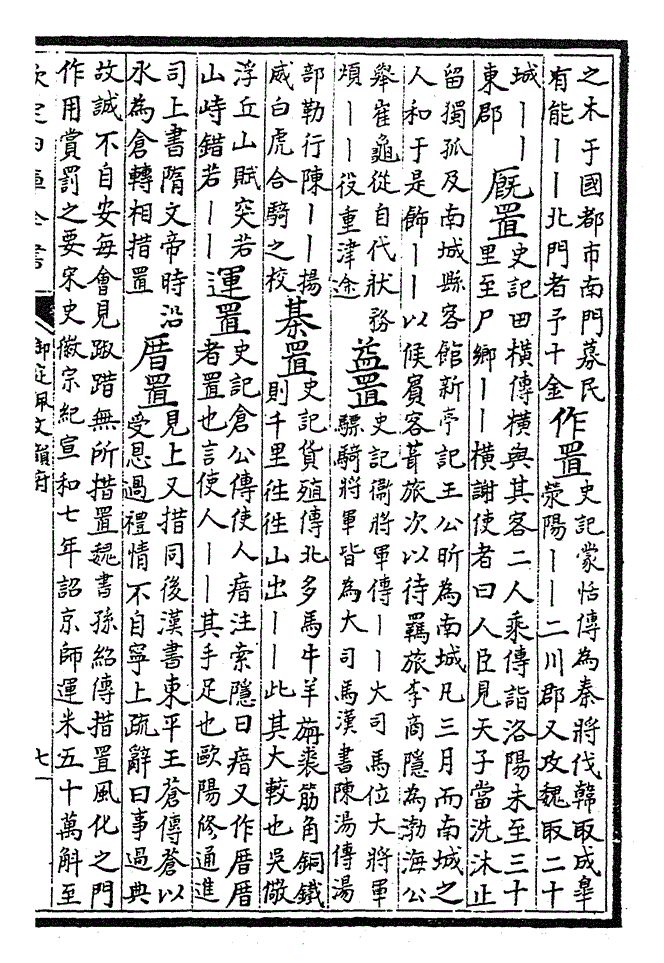 之木于國都市南門募民
有能丨丨北門者予十金
作置
史記蒙恬傳為秦將伐韓取成皋
滎陽丨丨二川郡又攻魏取二十
城丨丨
東郡
廐置
史記田橫傳橫與其客二人乘傳詣洛陽未至三十
里至尸鄉丨丨橫謝使者曰人臣見天子當洗沐止
留獨孤及南城縣客館新亭記王公昕為南城凡三月而南城之
人和于是飾丨丨以候賓客葺旅次以待羈旅李商隱為渤海公
舉崔龜從自代狀務
煩丨丨役重津途
益置
史記衞將軍傳丨丨大司馬位大將軍
驃騎將軍皆為大司馬漢書陳湯傳湯
部勒行陳丨丨揚
威白虎合騎之校
棊置
史記貨殖傳北多馬牛羊旃裘筋角銅鐵
則千里往往山出丨丨此其大較也吳儆
浮丘山賦突若
山峙錯若丨丨
運置
史記倉公傳使人瘖注索隱曰瘖又作厝厝
者置也言使人丨丨其手足也歐陽修通進
司上書隋文帝時沿
水為倉轉相措置
厝置
見上又措同後漢書東平王蒼傳蒼以
受恩過禮情不自寧上疏辭曰事過典
故誠不自安每會見踧踖無所措置魏書孫紹傳措置風化之門
作用賞罰之要宋史徽宗紀宣和七年詔京師運米五十萬斛至
欽定四庫全書
御定佩文韻府